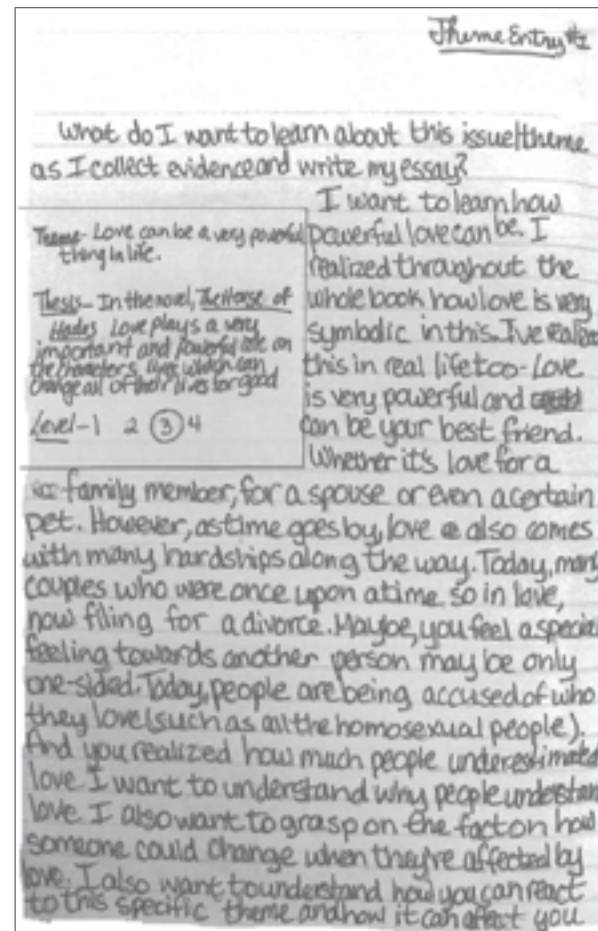 Theme Entry #1
What do I want to learn about this issue/theme
as I collect evidence and write my essay?
Theme- Love can be a very powerful
thing in life.
Thesis- In the novel, The House of
Hades Love plays a very
important and powerful role on
the characters lives which can
change all of their lives for good
Level-1 2 3 4
I want to learn how
powerful love can be. I
realized throughout the
whole book how love is very
symbolic in this. I've realized
this in real life too- Love
is very powerful and
can be your best friend.
Whether it's love for a
family member, for a spouse or even a certain
pet. However, as time goes by, love also comes
with many hardships along the way. Today, many
couples who were once upon a time so in love,
now filing for a divorce. Maybe, you feel a special
feeling towards another person may be only
one-sided. Today, people are being accused of who
they love (such as all the homosexual people).
And you realized how much people underestimated
love. I want to understand why people understand
love. I also want to grasp on the fact on how
someone could change when they're affected by
love. I also want to understand how you can react
to this specific theme and how it can affect you